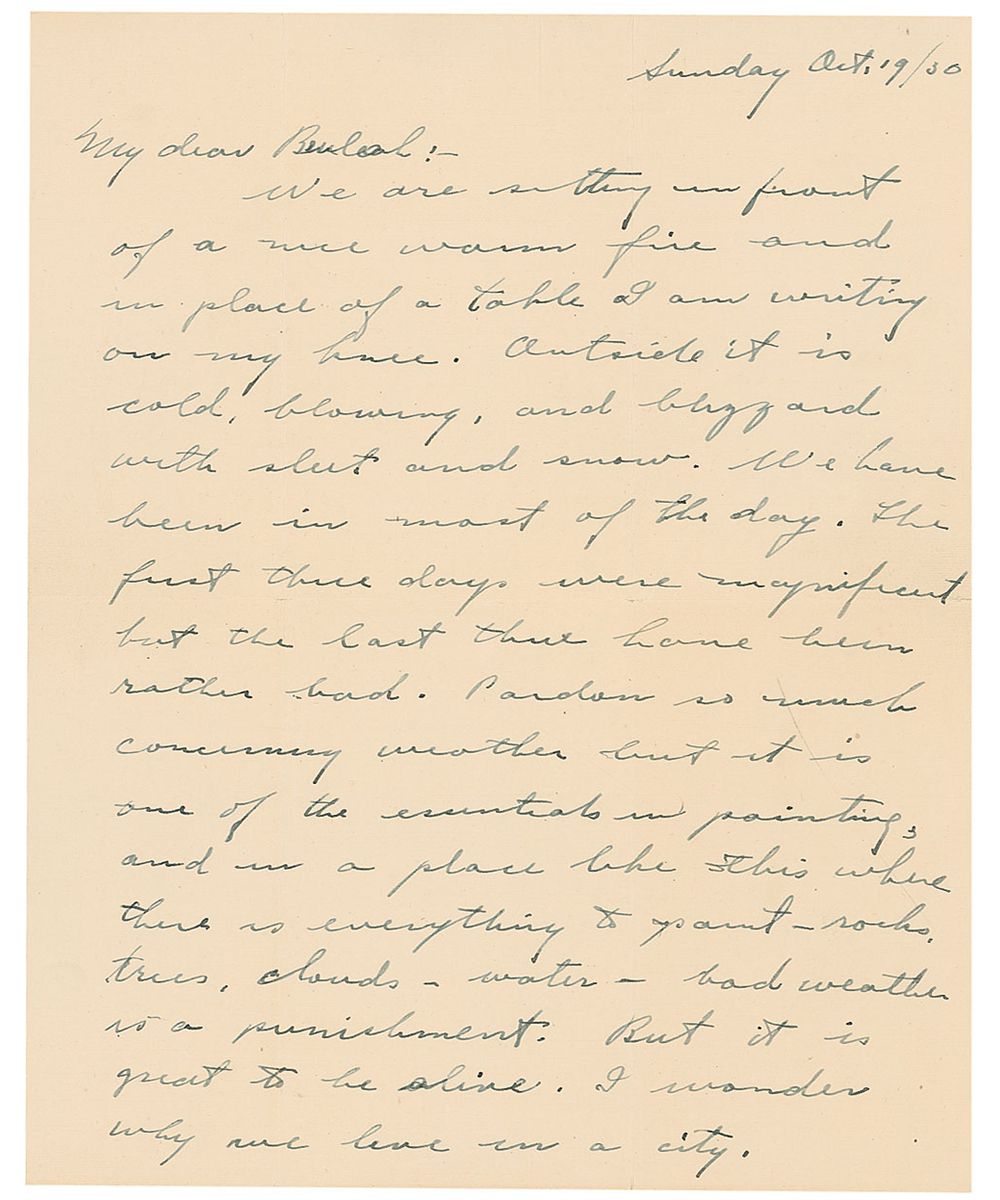 Sunday Oct. 19/30
My dear Beulah:-
We are sitting in front
of a nice warm fire and
in place of a table I am writing
on my knee. Outside it is
cold, blowing, and blizzard
with sleet and snow. We have
been in most of the day. The
first three days were magnificent
but the last three have been
rather bad. Pardon so much
concerning weather but it is
one of the essentials in painting,
and in a place like this where
there is everything to paint - rocks,
trees, clouds - water - bad weather
is a punishment. But it is
great to be alive. I wonder
why we live in a city.